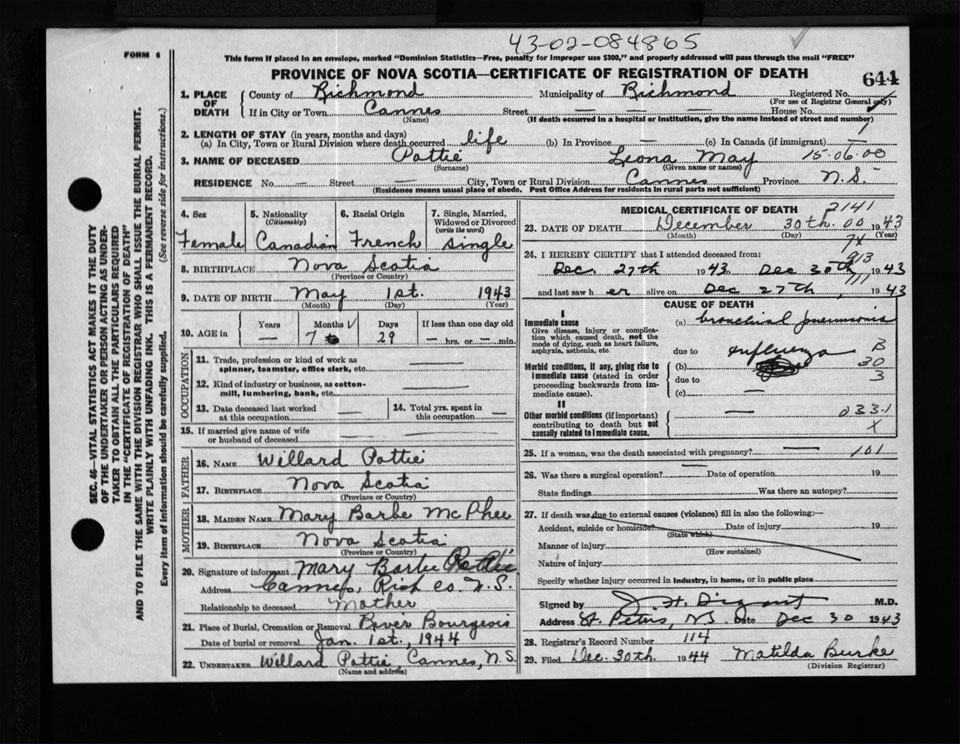 43-02-084865
FORM 6
This form if placed in an envelope, marked "Dominion Statistics—Free, penalty for improper use $300," and properly addressed will pass through the mail "FREE"
PROVINCE OF NOVA SCOTIA—CERTIFICATE OF REGISTRATION OF DEATH
644
1. PLACE OF DEATH
County of Richmond Municipality of Richmond Registered No.
(For use of Registrar General only)
If in City or Town Cannes Street — House No. —
(Name) (If death occurred in a hospital or institution, give the name instead of street and number)
2. LENGTH OF STAY (in years, months and days)
(a) In City, Town or Rural Division where death occurred life (b) In Province — (c) In Canada (if immigrant) —
3. NAME OF DECEASED Pattie Leona May 15-06-00
(Surname) (Given name or names)
RESIDENCE No. — Street — City, Town or Rural Division Cannes Province N.S.
(Residence means usual place of abode. Post Office Address for residents in rural parts not sufficient)
4. Sex Female
5. Nationality (Citizenship) Canadian
6. Racial Origin French
7. Single, Married, Widowed or Divorced (write the word) single
8. BIRTHPLACE Nova Scotia
(Province or Country)
9. DATE OF BIRTH May 1st. 1943
(Month) (Day) (Year)
10. AGE in Years Months Days If less than one day old
— 7 29 — hrs. or — min.
OCCUPATION
11. Trade, profession or kind of work as spinner, teamster, office clerk, etc. —
12. Kind of industry or business, as cotton-mill, lumbering, bank, etc. —
13. Date deceased last worked at this occupation —
14. Total yrs. spent in this occupation —
15. If married give name of wife or husband of deceased — —
FATHER
16. NAME Willard Pattie
17. BIRTHPLACE Nova Scotia
(Province or Country)
MOTHER
18. MAIDEN NAME Mary Barbe McPhee
19. BIRTHPLACE Nova Scotia
(Province or Country)
20. Signature of informant Mary Barbe Pattie
Address Cannes, Rich Co. N.S.
Relationship to deceased Mother
21. Place of Burial, Cremation or Removal River Bourgeois
Date of burial or removal Jan. 1st., 1944
22. UNDERTAKER Willard Pattie, Cannes, N.S.
(Name and address)
MEDICAL CERTIFICATE OF DEATH 2141
23. DATE OF DEATH December 30th. 00 1943
(Month) (Day) (Year)
24. I HEREBY CERTIFY that I attended deceased from:
Dec. 27th 1943 Dec 30th 1943
and last saw her alive on Dec 27th 1943
CAUSE OF DEATH
I
Immediate cause
Give disease, injury or complication which caused death, not the mode of dying, such as heart failure, asphyxia, asthenia, etc.
(a) bronchial pneumonia
due to influenza B
Morbid conditions, if any, giving rise to immediate cause (stated in order proceeding backwards from immediate cause).
(b) 30
due to 3
(c) —
II
Other morbid conditions (if important) contributing to death but not causally related to immediate cause.
— 0331
X
25. If a woman, was the death associated with pregnancy? — 101
26. Was there a surgical operation? — Date of operation 19
State findings Was there an autopsy?
27. If death was due to external causes (violence) fill in also the following:—
Accident, suicide or homicide? Date of injury 19
(State which)
Manner of injury
(How sustained)
Nature of injury
Specify whether injury occurred in industry, in home, or in public place
Signed by M.D.
Address St. Peters, N.S. Date Dec 30 1943
28. Registrar's Record Number 114
29. Filed Dec. 30th. 1944 Matilda Burke
(Division Registrar)
SEC. 46—VITAL STATISTICS ACT MAKES IT THE DUTY
OF THE UNDERTAKER OR PERSON ACTING AS UNDER-
TAKER TO OBTAIN ALL THE PARTICULARS REQUIRED
IN THE "CERTIFICATE OF REGISTRATION OF DEATH"
AND TO FILE THE SAME WITH THE DIVISION REGISTRAR WHO SHALL ISSUE THE BURIAL PERMIT.
WRITE PLAINLY WITH UNFADING INK. THIS IS A PERMANENT RECORD.
Every item of information should be carefully supplied. (See reverse side for instructions.)